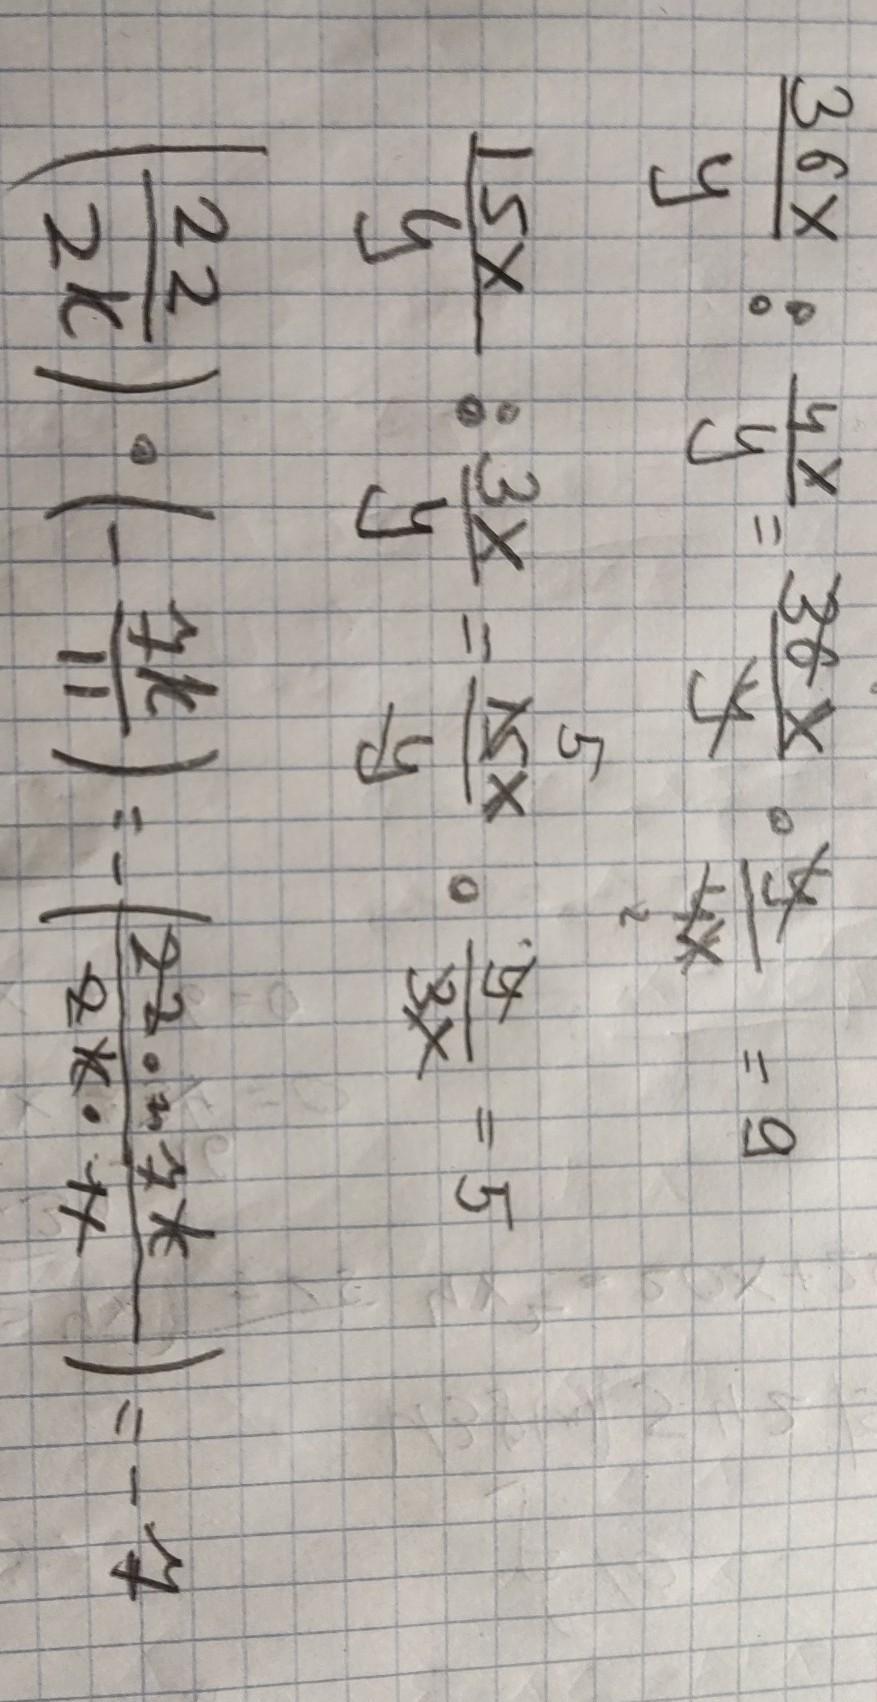 36x/y : 4x/y = 36x/y · y/4x = 9
15x/y : 3x/y = 15x/y · y/3x = 5
(22/2k) · (- 7k/11) = - (22 · 7k / 2k · 11) = - 7